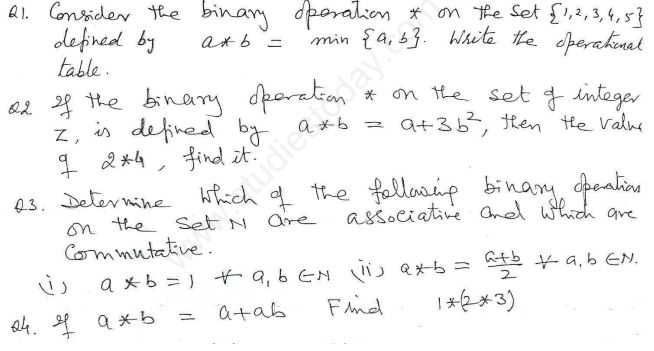 Q1. Consider the binary operation * on the Set {1,2,3,4,5}
defined by a*b = min {a,b}. Write the operational
table.
Q2 If the binary operation * on the set of integer
Z, is defined by a*b = a+3b², then the value
of 2*4, find it.
Q3. Determine which of the following binary operations
on the Set N are associative and which are
Commutative.
(i) a*b=1 ∀ a,b ∈N (ii) a*b = (a+b)/2 ∀ a,b ∈N.
Q4. If a*b = a+ab Find 1*(2*3)
www.studiestoday.com